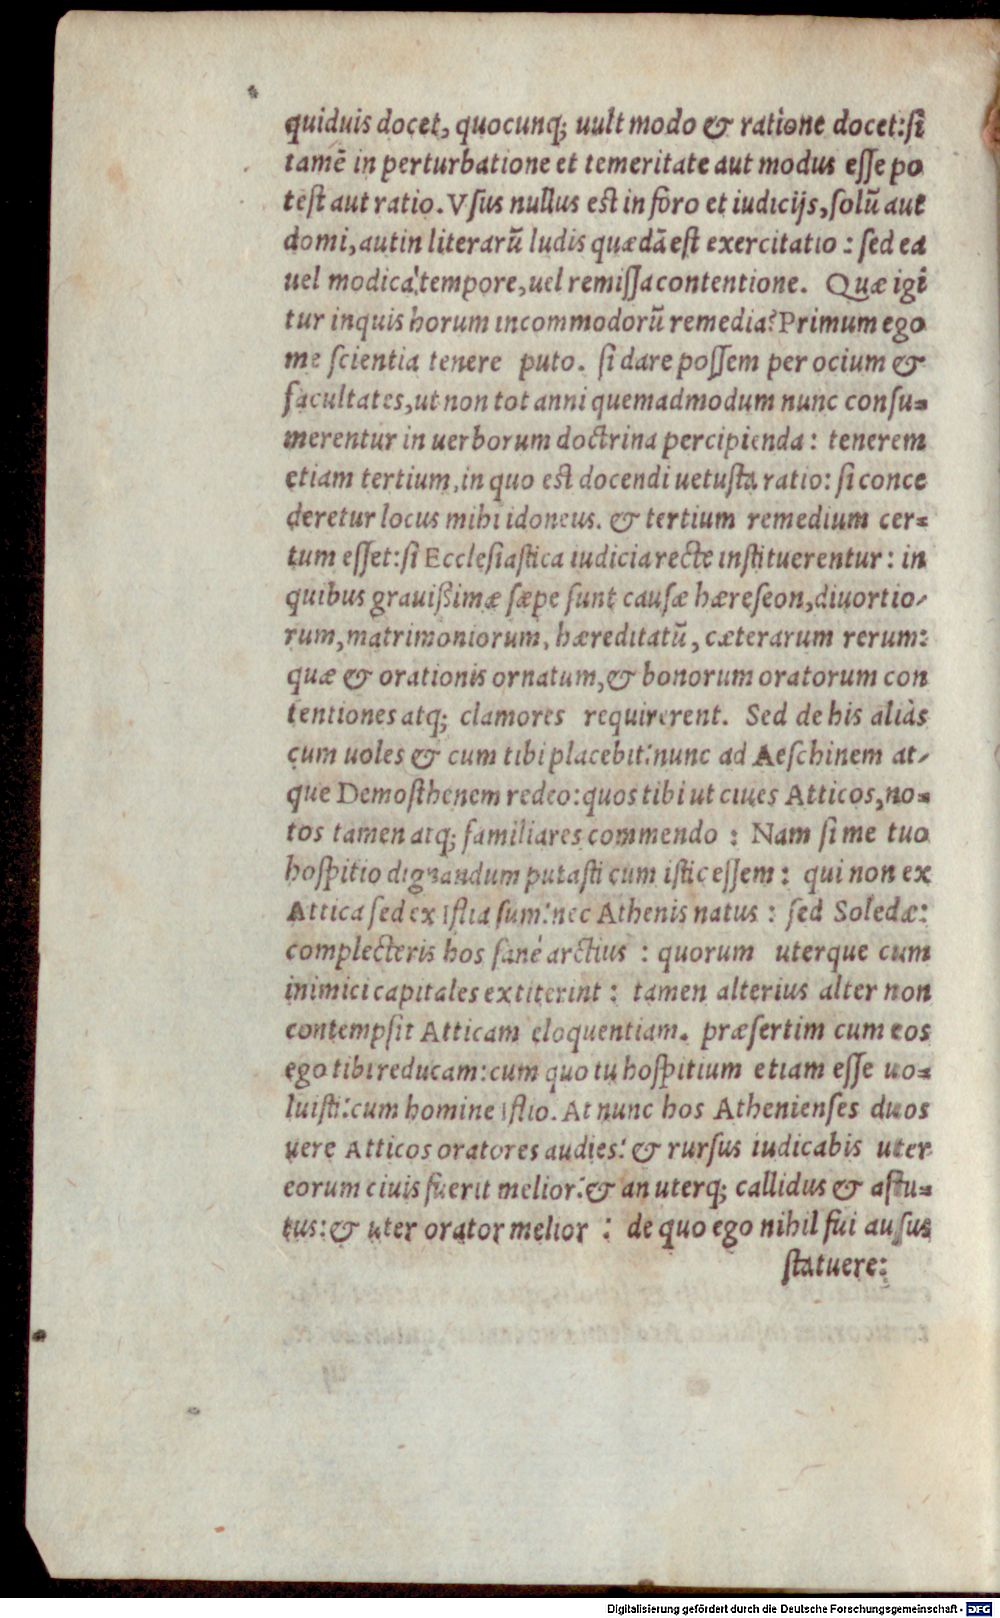 quiduis docet, quocunq; uult modo & ratione docet: ſi
tamē in perturbatione et temeritate aut modus eſſe po
teſt aut ratio. Vſus nullus eſt in foro et iudicijs, ſolū aut
domi, aut in literarū ludis quædā eſt exercitatio : ſed ea
uel modica tempore, uel remiſſa contentione. Quæ igi
tur inquis horum incommodorū remedia? Primum ego
me ſcientia tenere puto. ſi dare poſſem per ocium &
facultates, ut non tot anni quemadmodum nunc conſu=
merentur in uerborum doctrina percipienda : tenerem
etiam tertium, in quo eſt docendi uetuſta ratio: ſi conce
deretur locus mihi idoneus. & tertium remedium cer=
tum eſſet: ſi Eccleſiaſtica iudicia recte inſtituerentur : in
quibus grauißimæ ſæpe ſunt cauſæ hæreſeon, diuortio/
rum, matrimoniorum, hæreditatū, cæterarum rerum:
quæ & orationis ornatum, & bonorum oratorum con
tentiones atq; clamores requirerent. Sed de his aliàs
cum uoles & cum tibi placebit: nunc ad Aeſchinem at/
que Demoſthenem redeo: quos tibi ut ciues Atticos, no=
tos tamen atq; familiares commendo : Nam ſi me tuo
hoſpitio dignandum putaſti cum iſtic eſſem : qui non ex
Attica ſed ex Iſlia ſum: nec Athenis natus : ſed Soledæ:
complecteris hos ſanè arctius : quorum uterque cum
inimici capitales extiterint : tamen alterius alter non
contempſit Atticam eloquentiam. præſertim cum eos
ego tibi reducam: cum quo tu hoſpitium etiam eſſe uo=
luiſti: cum homine Iſlio. At nunc hos Athenienſes duos
uere Atticos oratores audies: & rurſus iudicabis uter
eorum ciuis fuerit melior: & an uterq; callidus & aſtu=
tus: & uter orator melior : de quo ego nihil fui auſus
ſtatuere:
Digitalisierung gefördert durch die Deutsche Forschungsgemeinschaft - DFG